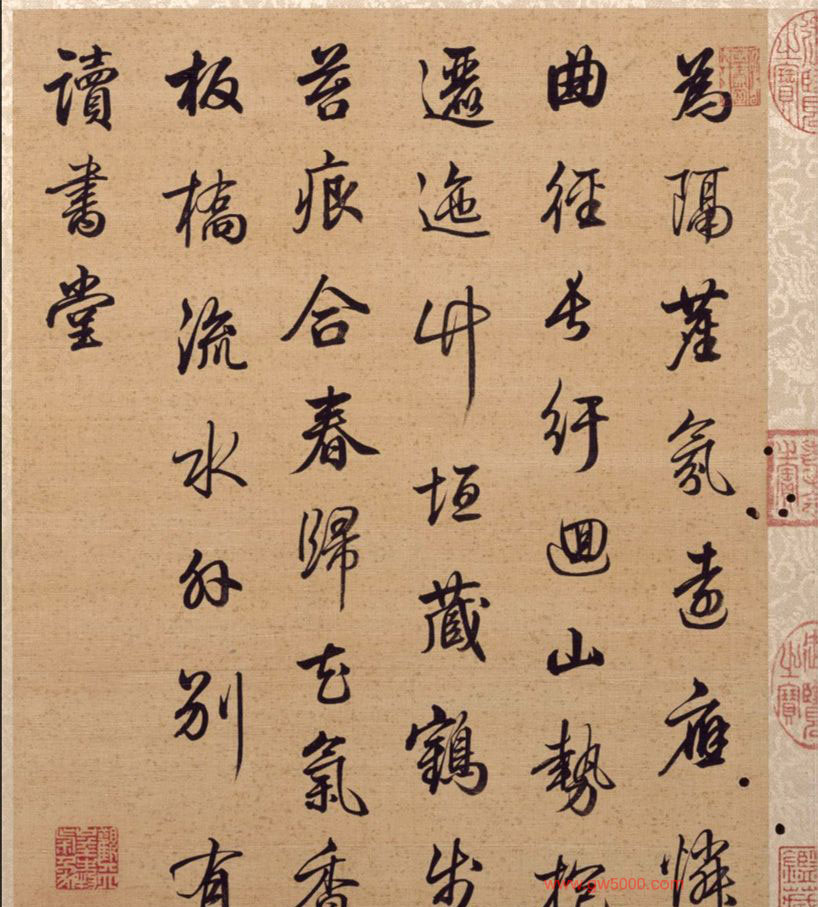 為隔崖氛遠應憐
曲徑長紆迴山勢抱
邐迤竹垣藏鶴步
苔痕合春歸花氣香
板橋流水外別有
讀書堂
www.gw5000.com